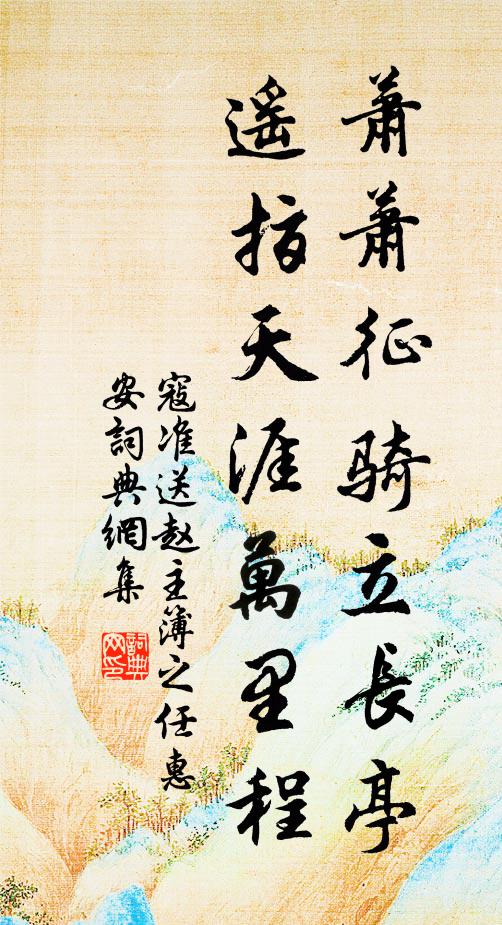 蕭蕭征騎立長亭
遥指天涯萬里程
寇准送赵主簿之任惠
安詞典網集
詞典
网印